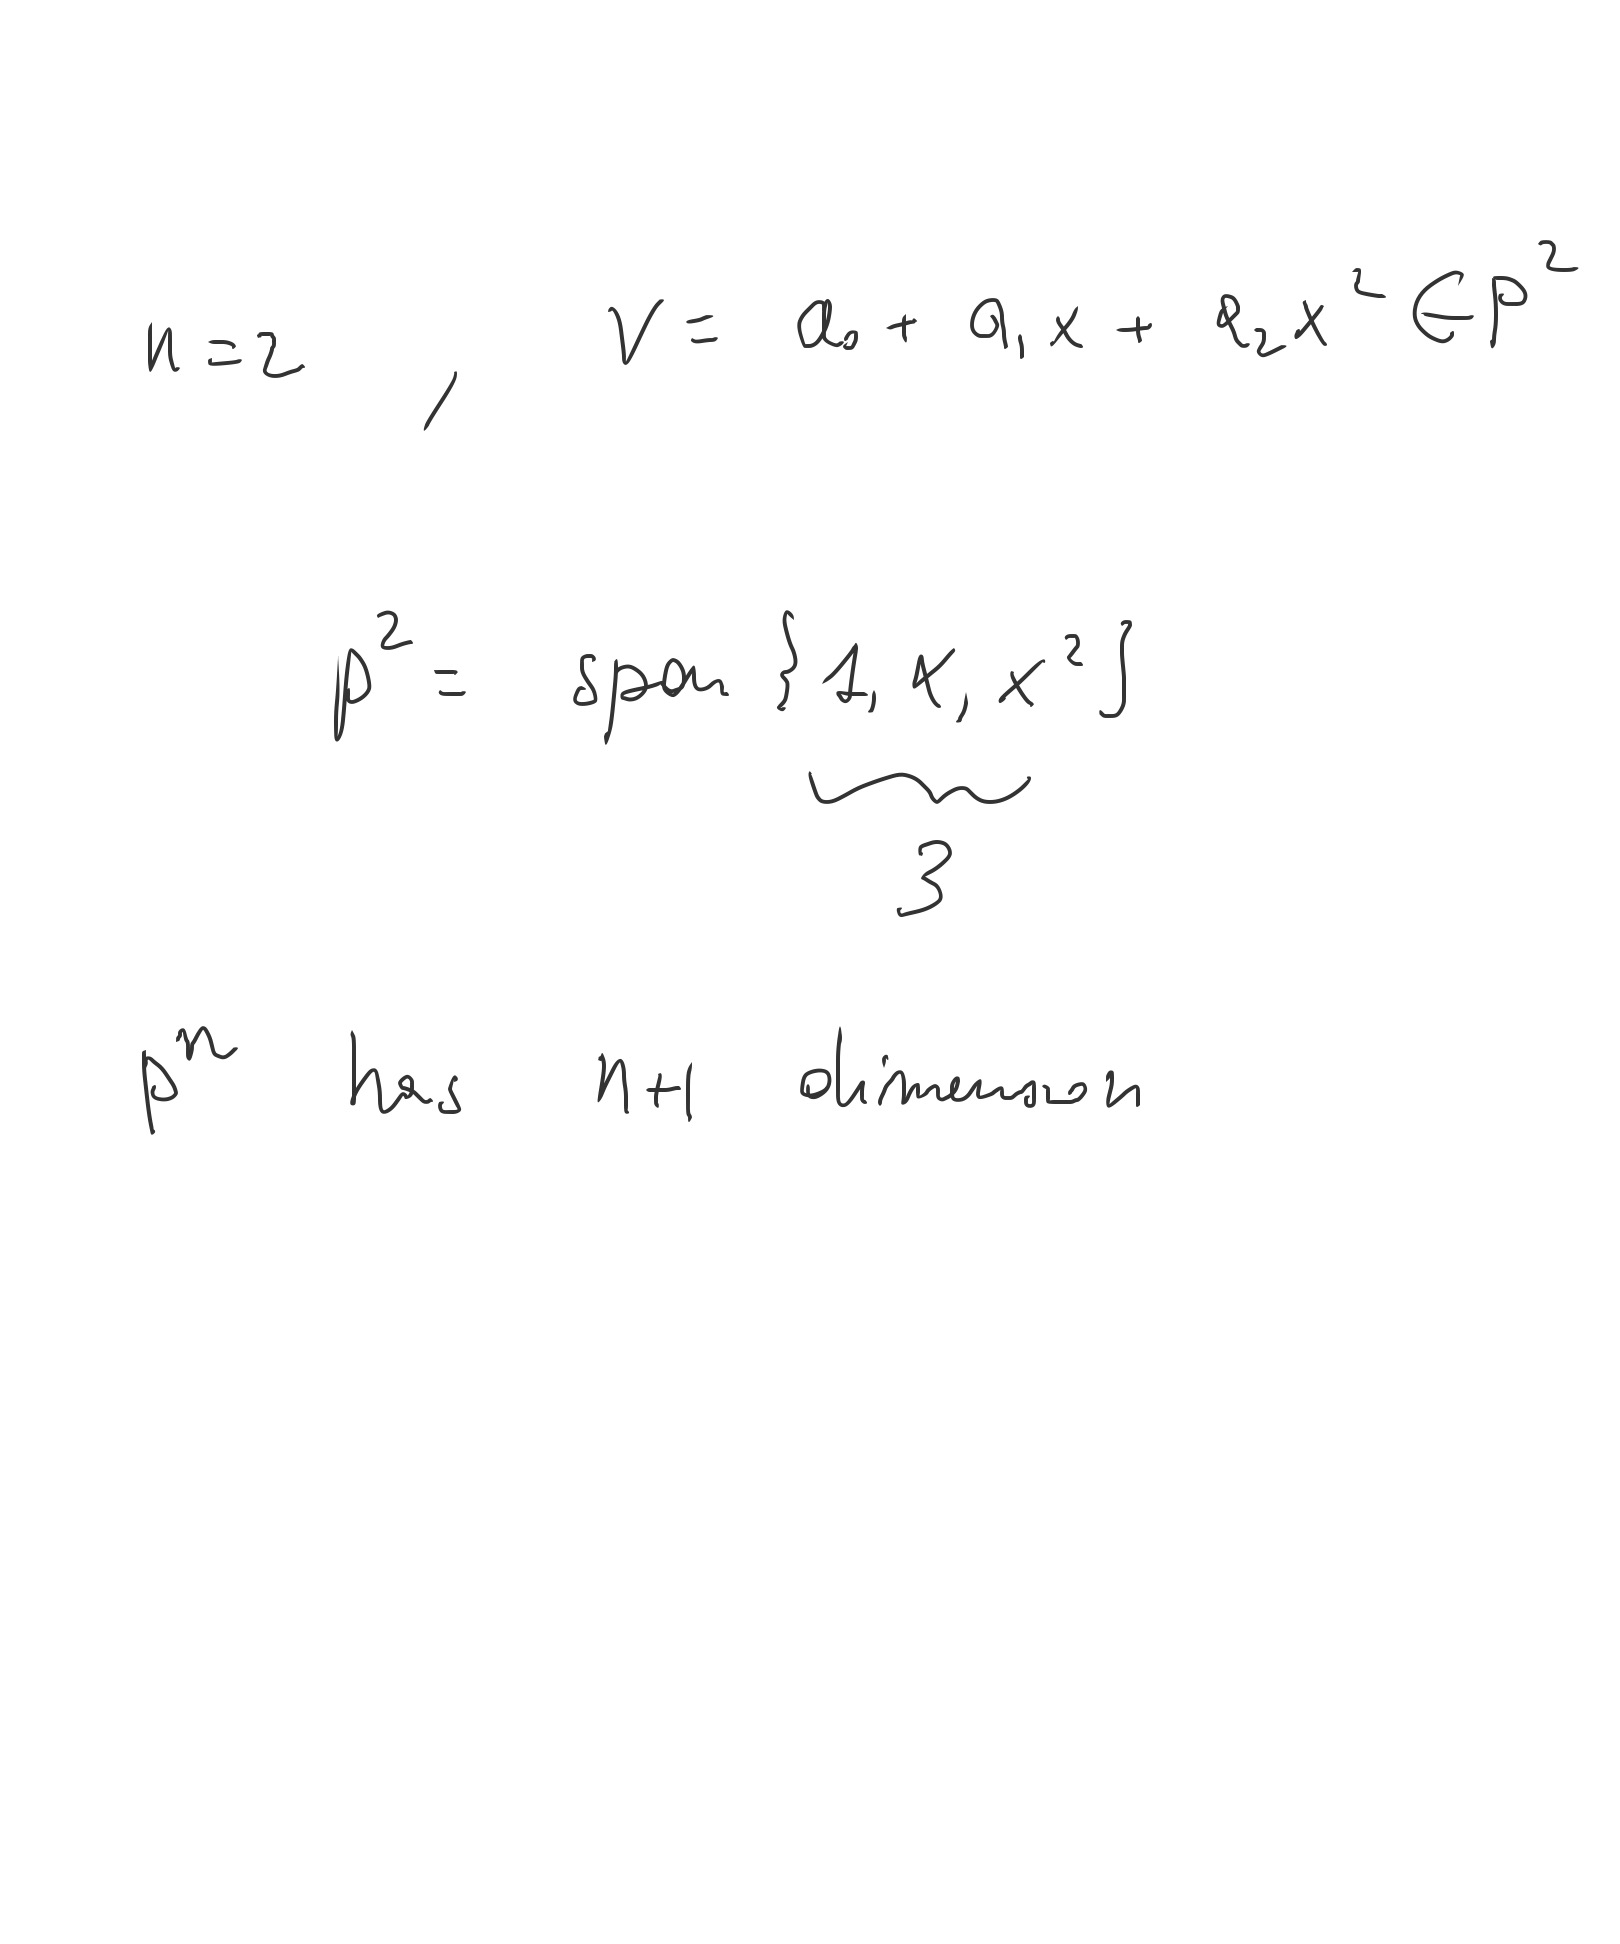 n = 2 , V = a₀ + a₁x + a₂x² ∈ P²
P² = span {1, x, x²}
3
Pⁿ has n+1 dimension